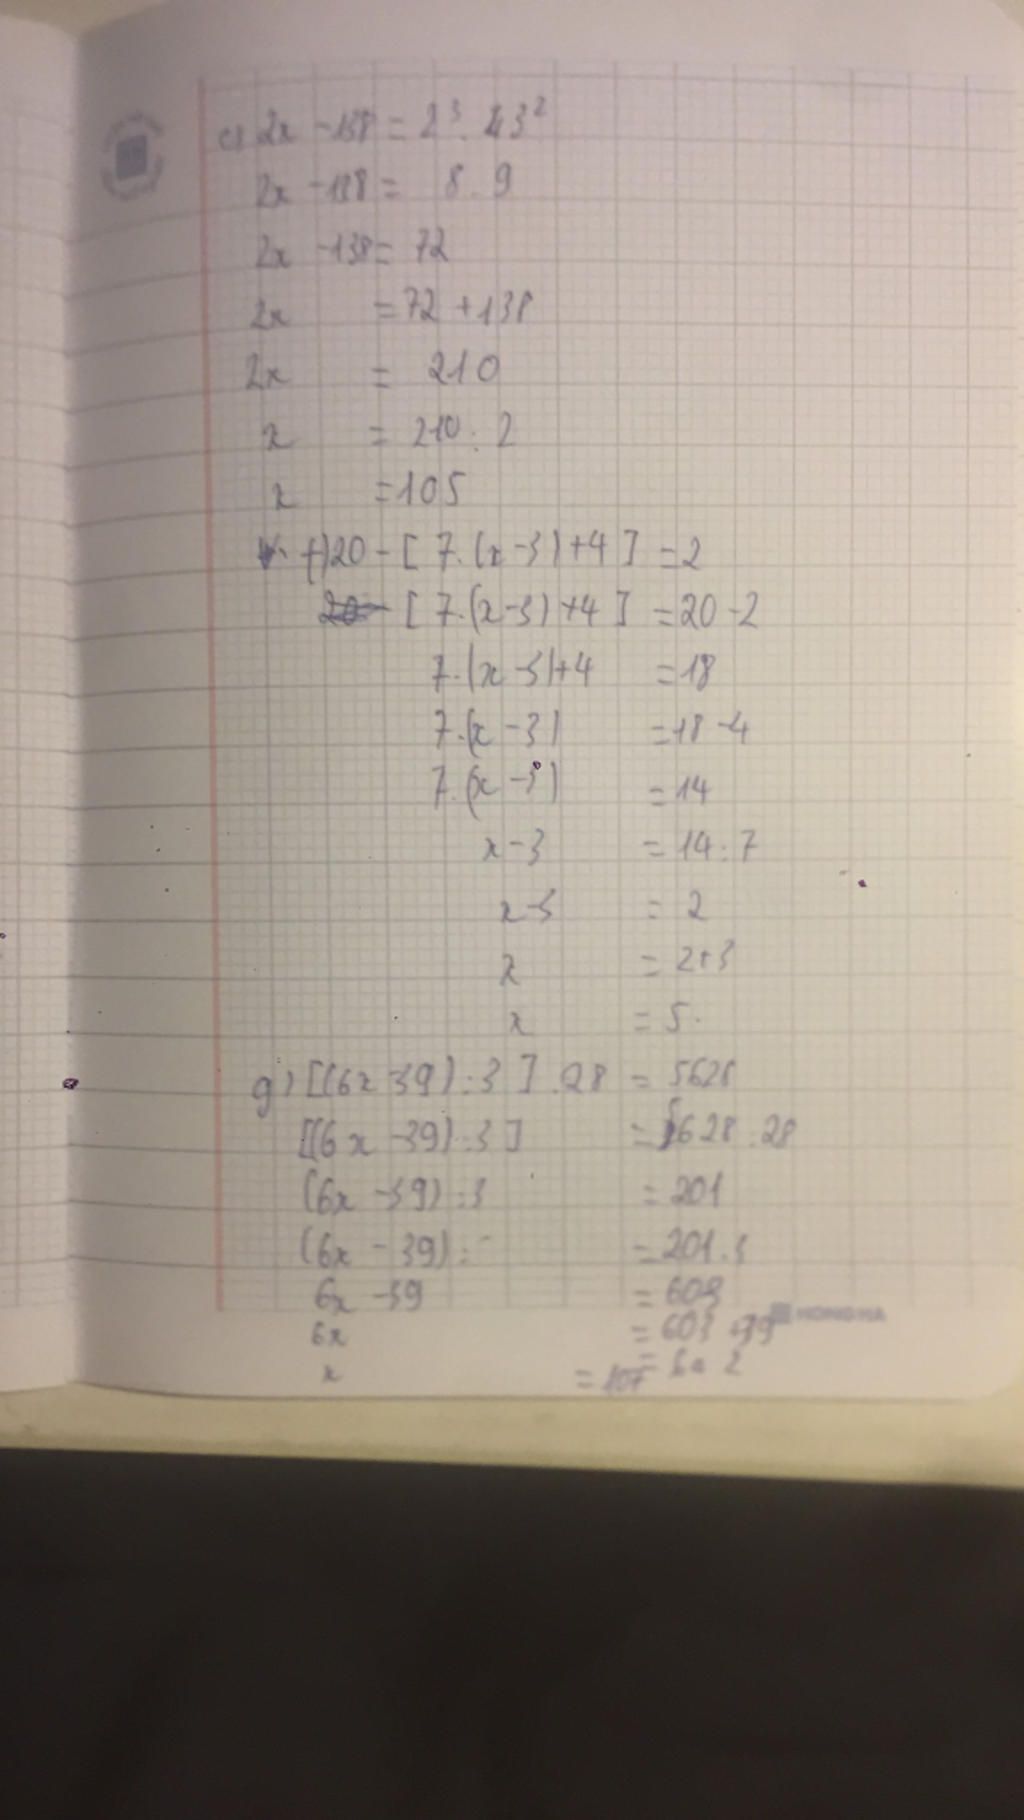 e) 2x - 138 = 2³ . 3²
2x - 138 = 8 . 9
2x - 138 = 72
2x = 72 + 138
2x = 210
x = 210 : 2
x = 105
f) 20 - [ 7.(x - 3) + 4 ] = 2
[ 7.(x - 3) + 4 ] = 20 - 2
7.(x - 3) + 4 = 18
7.(x - 3) = 18 - 4
7.(x - 3) = 14
x - 3 = 14 : 7
x - 3 = 2
x = 2 + 3
x = 5.
g) [(6x - 39) : 3 ] . 28 = 5628
[(6x - 39) : 3 ] = 5628 : 28
(6x - 39) : 3 = 201
(6x - 39) = 201 . 3
6x - 39 = 603
6x = 603 + 39 HONG HA
x = 107